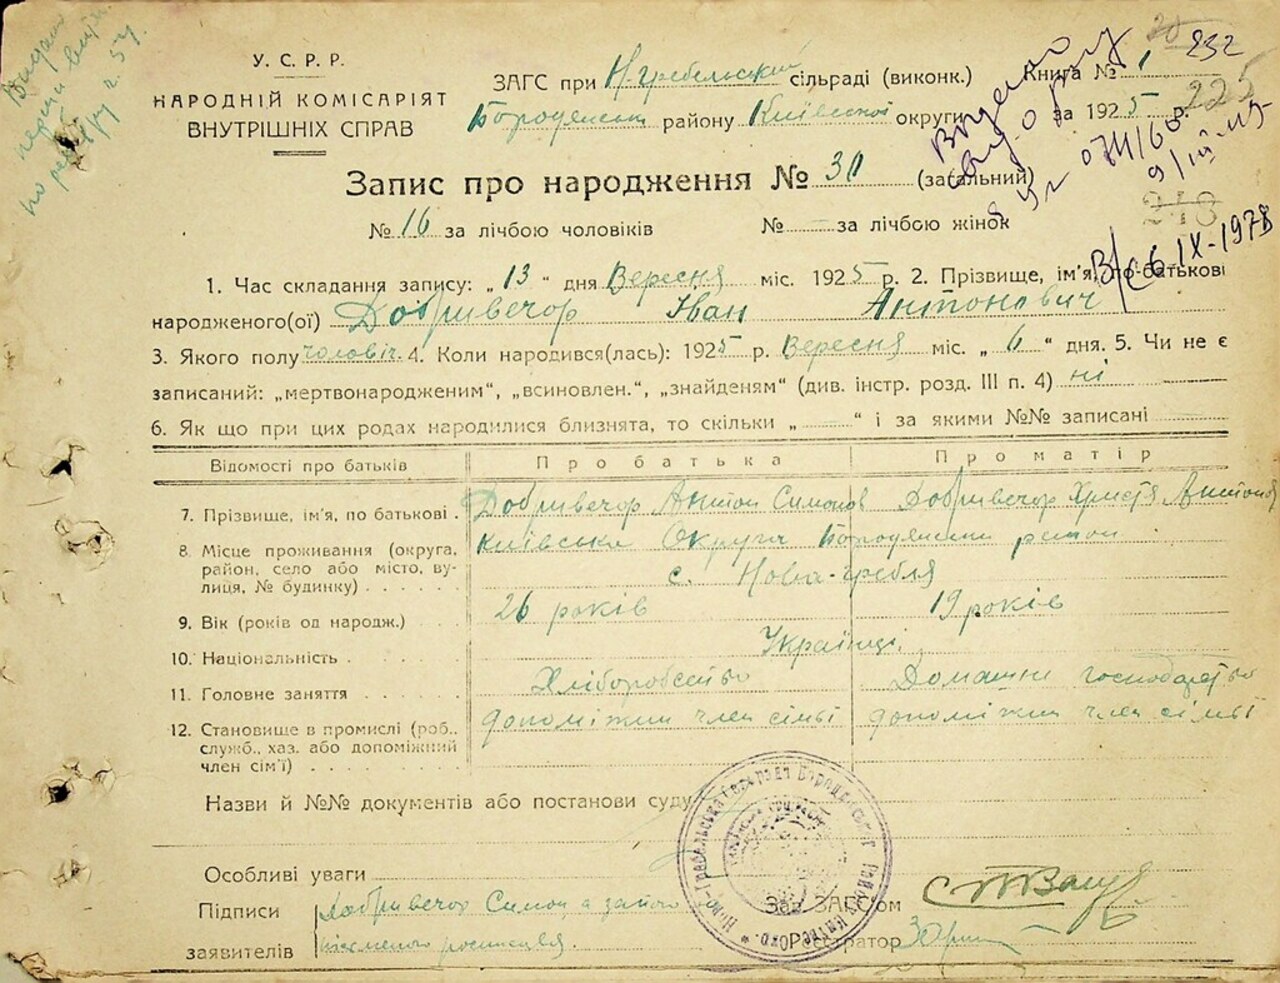 У. С. Р. Р.
НАРОДНІЙ КОМІСАРІЯТ
ВНУТРІШНІХ СПРАВ
ЗАГС при Н. Гребельській сільраді (виконк.)
Бородянськ району Київської округи
Книга № 1
за 1925 р.
232
225
Запис про народження № 30 (загальний)
№ 16 за лічбою чоловіків № — за лічбою жінок
6 IX-1978
1. Час складання запису: „13“ дня Вересня міс. 1925 р. 2. Прізвище, ім'я, по-батькові
народженого(ої) Добривечор Іван Антонович
3. Якого полу чоловіч. 4. Коли народився(лась): 1925 р. Вересня міс. „6“ дня. 5. Чи не є
записаний: „мертвонародженим“, „всиновлен.“, „знайденям“ (див. інстр. розд. III п. 4) ні
6. Як що при цих родах народилися близнята, то скільки „ “ і за якими №№ записані
Відомості про батьків Про батька Про матір
7. Прізвище, ім'я, по батькові . Добривечор Антон Симонов Добривечор Христя Антонов
8. Місце проживання (округа, район, село або місто, вулиця, № будинку) Київська Округа Бородянський район
с. Нова-Гребля
9. Вік (років од народж.) 26 років 19 років
10. Національність Українці
11. Головне заняття Хліборобство Домашнє господарство
12. Становище в промислі (роб., служб., хаз. або допоміжний член сім'ї) допоміжни член сімьї допоміжни член сімьї
Назви й №№ документів або постанови суду
Особливі уваги
Підписи заявителів Добривечор Симон а за його
Зав. ЗАГС'ом
Реєстратор